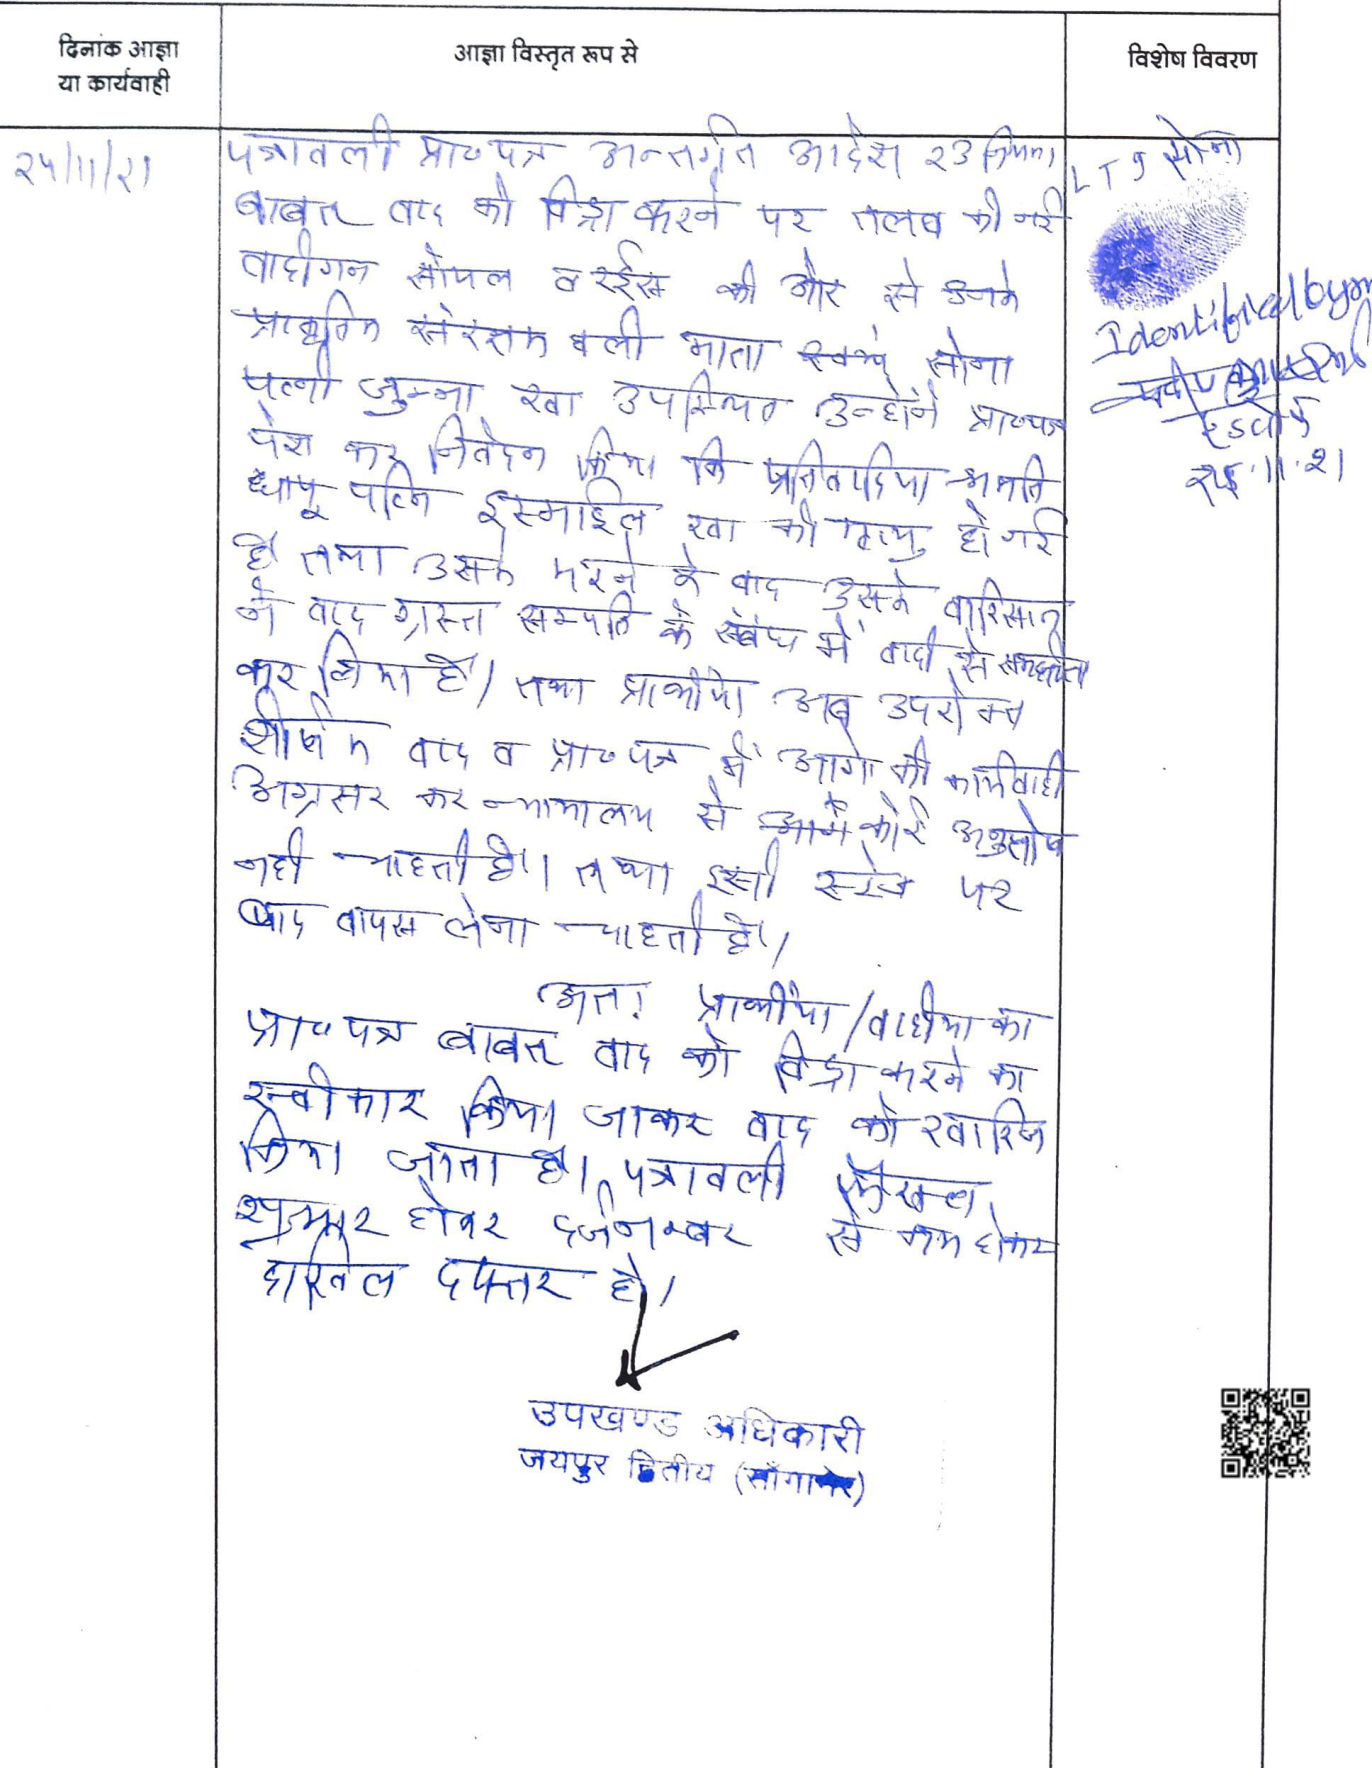 दिनांक आज्ञा
या कार्यवाही
आज्ञा विस्तृत रूप से
विशेष विवरण
२५/११/२१
पत्रावली प्रा०पत्र अन्तर्गत आदेश २३ नियम १
बाबत वाद को विड्रा करने पर तलब की गई
वादीगन सोयल व रईस की और से उनके
प्राकृतिक संरक्षक वली माता स्वयं सोना
पत्नी जुम्मा खा उपस्थित उन्होंने प्रा०पत्र
पेश कर निवेदन किया कि प्रतिवादिया श्रीमति
धापू पत्नि इस्माईल खा की मृत्यु हो गई
है तथा उसके मरने के बाद उसके वारिसान
ने वाद ग्रस्त सम्पति के संबंध में वादी से समझौता
कर लिया है। तथा प्रार्थीया अब उपरोक्त
शीर्षक वाद व प्रा०पत्र में आगे की कार्यवाही
अग्रसर कर न्यायालय से कोई अनुतोष
नही चाहती है। तथा इसी स्टेज पर
वाद वापस लेना चाहती है।
अत: प्रार्थीया/वादीया का
प्रा०पत्र बाबत वाद को विड्रा करने का
स्वीकार किया जाकर वाद को खारिज
किया जाता है। पत्रावली फैसल
शुमार होकर दर्ज नम्बर से कम होकर
दाखिल दफ्तर हो।
उपखण्ड अधिकारी
जयपुर द्वितीय (साँगानेर)
LTI सोना
Identified by me
एडवोकेट
२५.११.२१